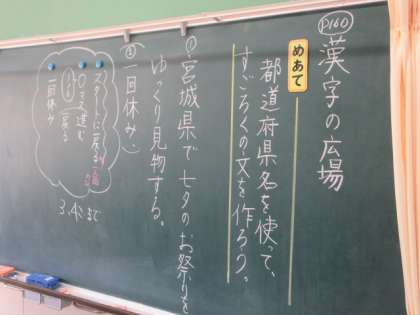 P160
漢字の広場
めあて
都道府県名を使って、
すごろくの文を作ろう。
① 宮城県で七夕のお祭りを
ゆっくり見物する。
一回休み。
スタートに戻る
○マス進む
戻る
一回休み
3、4こまで